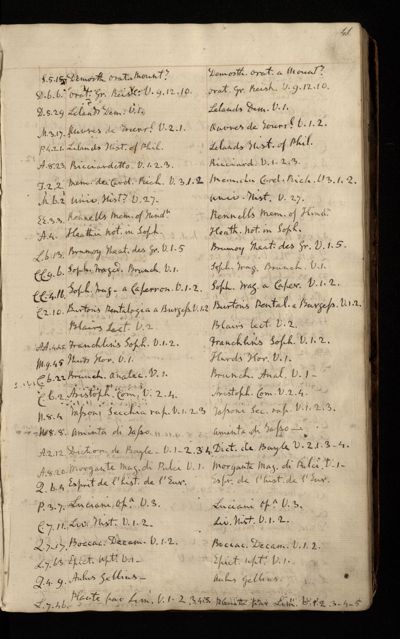 41
S.5.15 Demosth. orat. a Mount? Demosth. orat. a Mount?
D.6.6. orat. Gr. Reisk. V.9.12.10. orat. Gr. Reisk. V.9.12.10.
D.5.29 Lelands Dem. V.1. Lelands Dem. V.1.
M.3.17. Œuvres de V.2.1. Œuvres de V.1.2.
P.4.21. Lelands Hist. of Phil. Lelands Hist. of Phil.
A.8.23. Ricciardetto. V.1.2.3. Ricciard. V.1.2.3.
J.2.2 Mem. du Card. Rich. V.3.1.2 Mem. du Card. Rich. V.3.1.2.
M.6.2 Univ. Hist? V.27. Univ. Hist. V.27.
EE.3.3. Rennells Mem. of Hindn Rennells Mem. of Hind.
A.4. Heathii not. in Soph. Heath. Not. in Soph.
L.6.13. Brumoy Theat. des Gr. V.1.5 Brumoy Theat. des Gr. V.1.5.
CC.9.6. Soph. Traged. Brunck. V.1. Soph. Trag. Brunck. V.1.
CC.4.16. Soph. Trag. a Caperron. V.1.2. Soph. Trag. a Caper. V.1.2.
C.2.10. Burtons Pentalogia a Burgess. V.1.2 Burtons Pental. a Burgess. V.1.2.
Blairs Lect. V.2 Blairs lect. V.2.
AA.4.22 Francklins Soph. V.1.2. Francklins Soph. V.1.2.
M.9.45 Hurds Hor. V.1. Hurds Hor. V.1.
C.6.22 Brunck. Analec. V.1. Brunck. Anal. V.1
C.6.2 Aristoph. Com. V.2.4. Aristoph. Com. V.2.4.
N.8.4 Tassoni Secchia rap. V.1.2.3 Tassoni Sec. rap. V.1.2.3.
N.8.8. Aminta di Tasso Aminta di Tasso
A.2.12. Diction. de Bayle. V.1-2.3.4 Dict. de Bayle V.2.1.3-4.
A.8.20. Morgante Mag. di Pulci V.1. Morgante Mag. di Pulci V.1-
Q.6.4 Esprit de l'hist. de l'Eur. Espr. de l'hist. de l'Eur.
P.3.7. Luciani Opa V.3. Luciani Opa V.3.
C.7.11. Liv. Hist. V.1.2. Liv. Hist. V.1.2.
Q.7.17. Boccac. Decam. V.1.2. Boccac. Decam. V.1.2.
L.7.63 Epict. Upt. V.1 Epict. upt. V.1-
Q.4.9. Aulus Gellius Aulus Gellius.
L.7.46. Plaute par Lim. V.1-2.3.4.5 Plaute par Lim. V.1.2.3-4-5